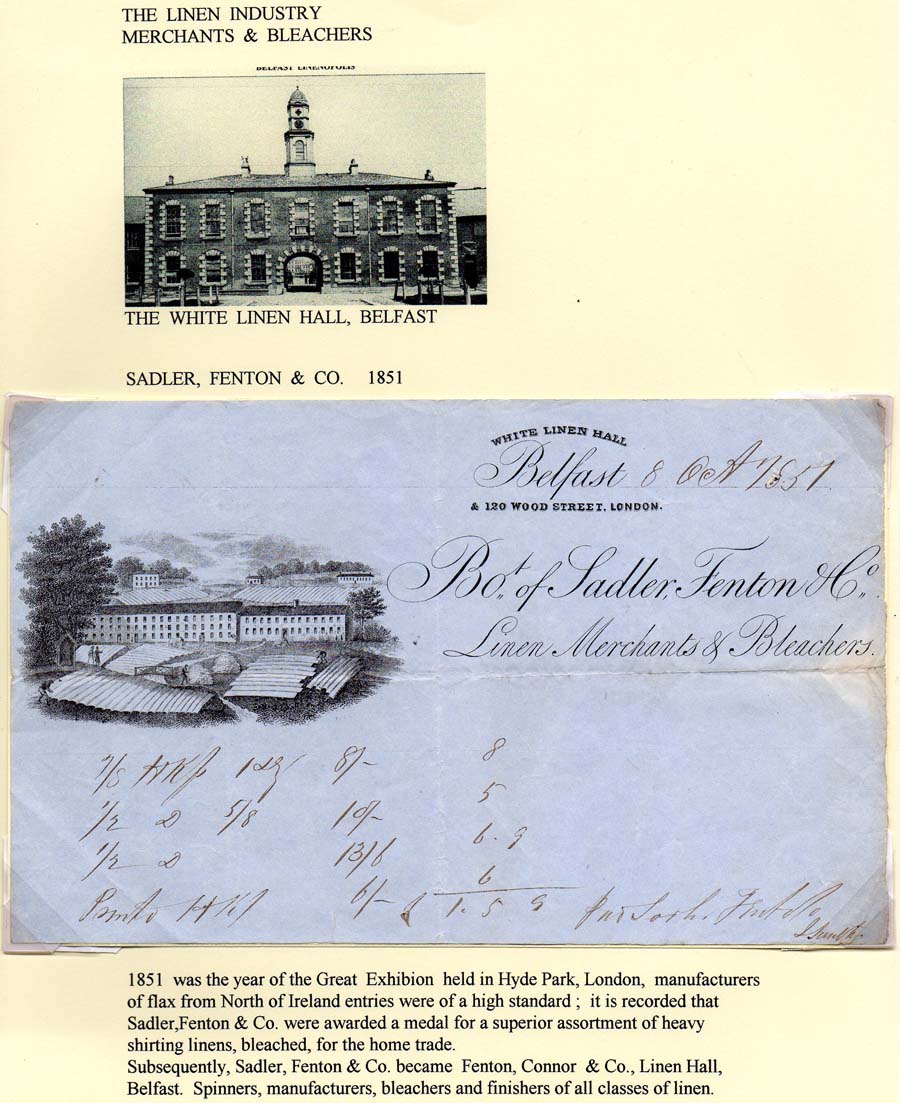 THE LINEN INDUSTRY
MERCHANTS & BLEACHERS
BELFAST LINENOPOLIS
THE WHITE LINEN HALL, BELFAST
SADLER, FENTON & CO. 1851
WHITE LINEN HALL
Belfast 8 Oct 1851
& 120 WOOD STREET, LONDON.
Bot. of Sadler, Fenton & Co.
Linen Merchants & Bleachers.
7/8 HKfs 8/- 8
1/2 D 5/8 10/- 5
1/2 D 13/6 6. 9
HKf 6/- 6
£ 1. 5 9
1851 was the year of the Great Exhibion held in Hyde Park, London, manufacturers
of flax from North of Ireland entries were of a high standard ; it is recorded that
Sadler,Fenton & Co. were awarded a medal for a superior assortment of heavy
shirting linens, bleached, for the home trade.
Subsequently, Sadler, Fenton & Co. became Fenton, Connor & Co., Linen Hall,
Belfast. Spinners, manufacturers, bleachers and finishers of all classes of linen.